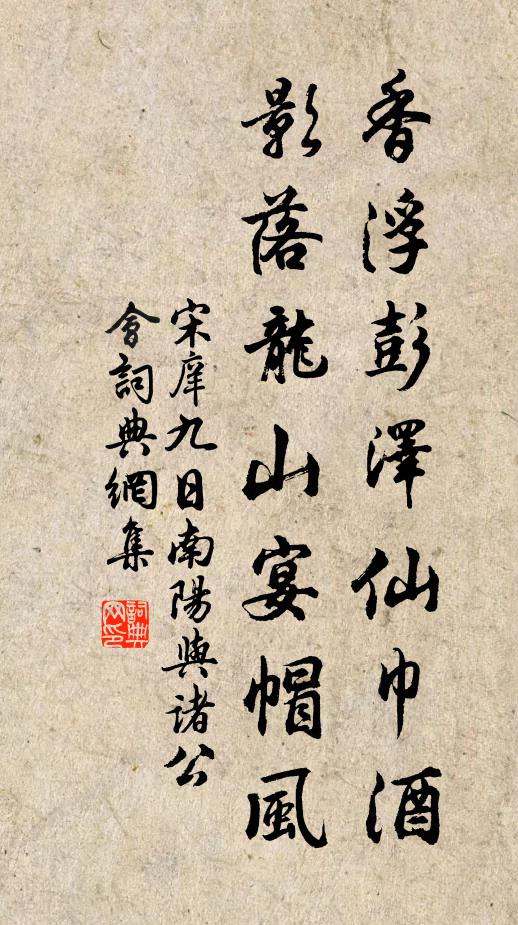 香浮彭澤仙巾酒
影落龍山宴帽風
宋庠九日南陽與諸公
會詞典網集
詞典
网印